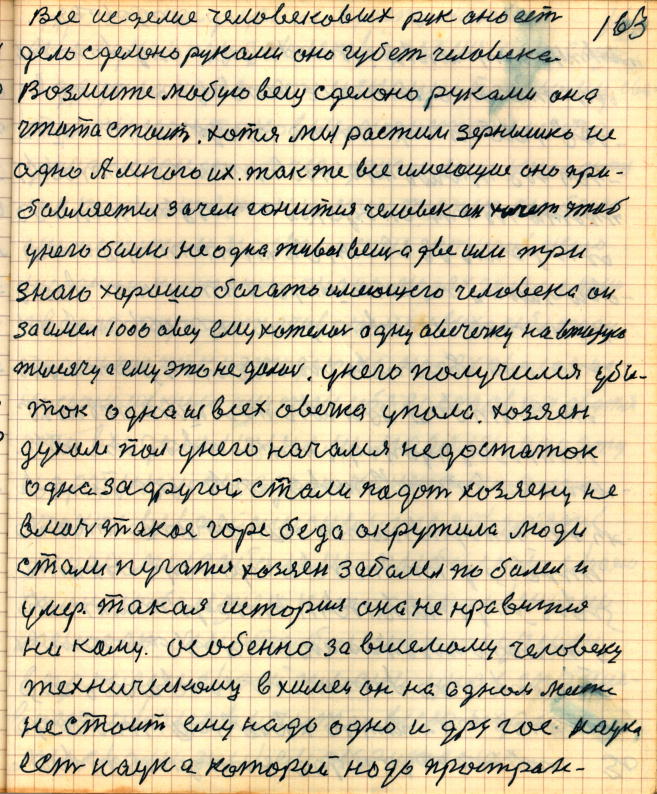 163
Все изделие человековых рук оно ест
дело сделоно руками оно губет человека.
Возмите любую вещ сделоно руками она
чтота стоит. хотя мы растим зернышко не
адно А много их. так же все имеющие оно при-
бавляется зачем гонится человек он хочет чтоб
унего были не одна живая вещ а две или три
знаю хорошо багато имеющего человека он
заимел 1000 авец ему хотелос одну авечечку на вторую
тысячу а ему это не далос. унего получился убы-
ток одна из всех овечка упала. хозяен
духом пал унего начался недостаток
одна за другой стали падат хозяену не
вмоч такое горе беда окружила люди
стали пугатся хозяен забалел по балел и
умер. такая история она не нравится
ни каму. особенно зависемому человеку
техническому в химеи он на одном месте
не стоит ему надо одно и другое. наука
ест наука которой надо простран-